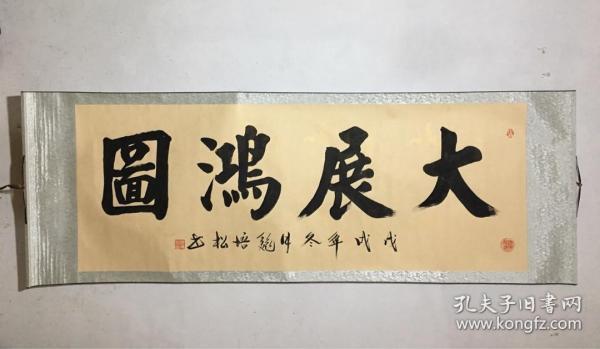 大展鴻圖
戊戌年冬月魏培松书
孔夫子旧书网
www.kongfz.com